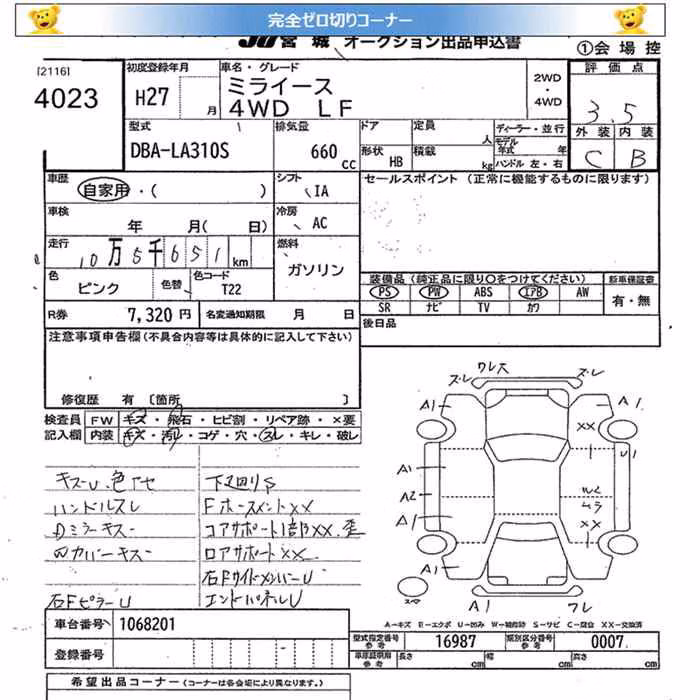 完全ゼロ切りコーナー
JU宮城 オークション出品申込書
①会場控
[2116]
4023
初度登録年月
H27 月
車名・グレード
ミライース
4WD LF
2WD
・
4WD
評価点
3.5
外装 内装
C B
型式
DBA-LA310S
排気量
660 cc
ドア
定員 人
ディーラー・並行
モデル年式 年
形状 HB
積載 kg
ハンドル 左・右
車歴
自家用・( )
シフト
IA
セールスポイント (正常に機能するものに限ります)
車検
年 月( 日)
冷房
AC
走行
10万5千651km
燃料
ガソリン
色
ピンク
色替
色コード
T22
装備品 (純正品に限り○をつけてください)
新車保証書
PS PW ABS エアB AW
SR ナビ TV カワ
有・無
R券 7,320 円
名変通知期限 月 日
後日品
注意事項申告欄(不具合内容等は具体的に記入して下さい)
修復歴 有 〔箇所 〕
検査員 FW キズ・飛石・ヒビ割・リペア跡・×要
記入欄 内装 キズ・汚レ・コゲ・穴・スレ・キレ・破レ
キズーU、色アセ
ハンドルスレ
Dミラーキズー
四カバーキズー
右FピラーU
下廻りS
FホースメントXX
コアサポート1部XX.歪
ロアサポートXX
右FサイドメンバーU
エンドパネルU
ズレ ワレ大 ズレ
A1 A1
XX
U1
A1
A2
A1
ムラ
XX
A1
A1 ワレ
A-キズ E-エクボ U-凹み W-補修跡 S-サビ C-腐食 XX-交換済
車台番号 1068201
登録番号
型式指定番号 参考 16987
類別区分番号 参考 0007
車庫証明用 参考 長さ cm 幅 cm 高さ cm
希望出品コーナー (コーナーは各会場により異なります。)